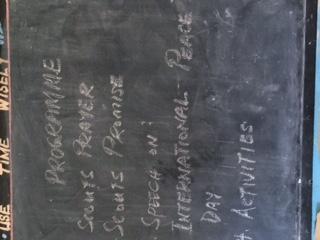 USE TIME WISELY
PROGRAMME
SCOUTS PRAYER
SCOUTS PROMISE
SPEECH ON:
INTERNATIONAL - PEACE
DAY
ACTIVITIES